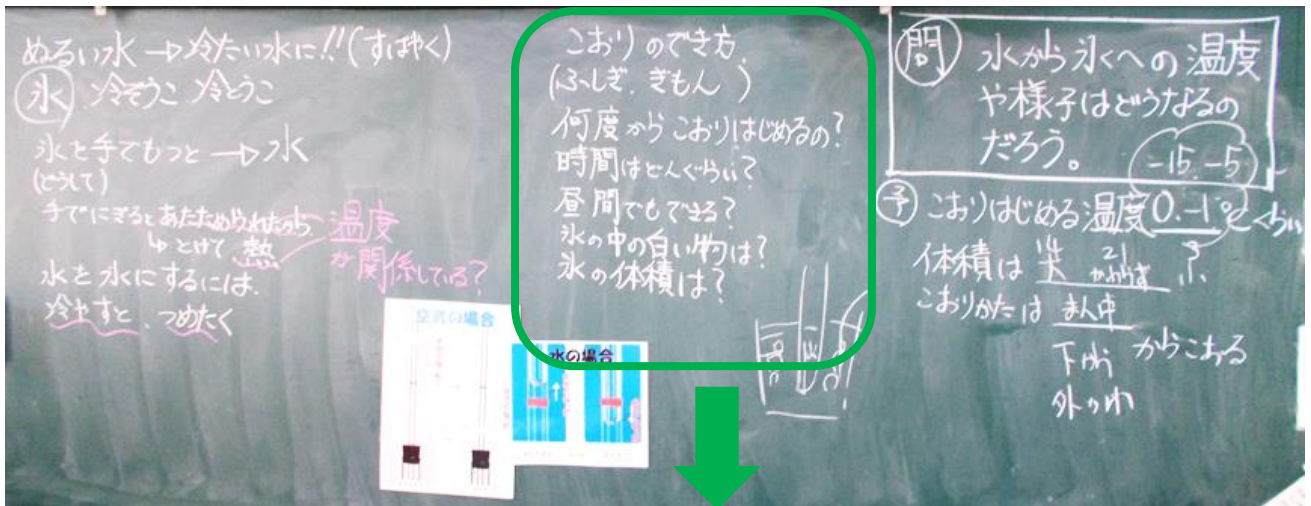 ぬるい水→冷たい水に!!(すばやく)
氷 冷ぞうこ 冷とうこ
氷を手でもつと→水
(どうして)
手でにぎるとあたためられたから
↳とけて 熱
温度
が関係している?
水を氷にするには.
冷やすと、つめたく
空気の場合
水の場合
こおりのでき方
(ふしぎ.ぎもん )
何度からこおりはじめるの?
時間はどんぐらい?
昼間でもできる?
氷の中の白い物は?
氷の体積は?
問 水から氷への温度
や様子はどうなるの
だろう。
-15. -5
予 こおりはじめる温度0.-1℃くらい
体積は ?
こおりかたは まん中
からこおる
下から